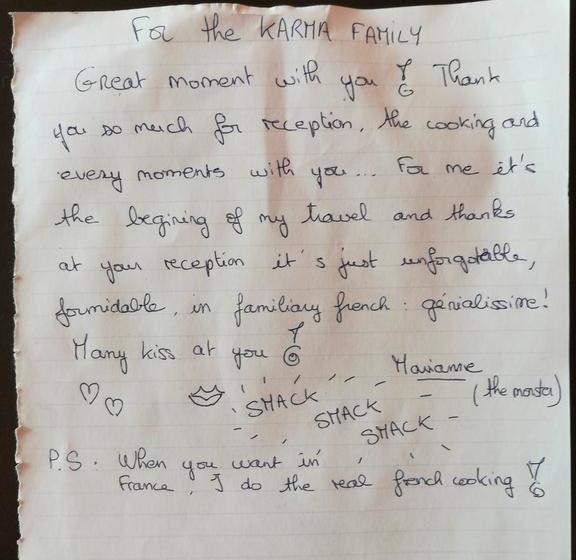 For the KARMA FAMILY
Great moment with you ! Thank
you so much for reception, the cooking and
every moments with you... For me it's
the begining of my travel and thanks
at your reception it's just unforgotable,
formidable, in familiary french : génialissime!
Many kiss at you !
Marianne
(the monsta)
SMACK
SMACK
SMACK
P.S. When you want in
France, I do the real french cooking !